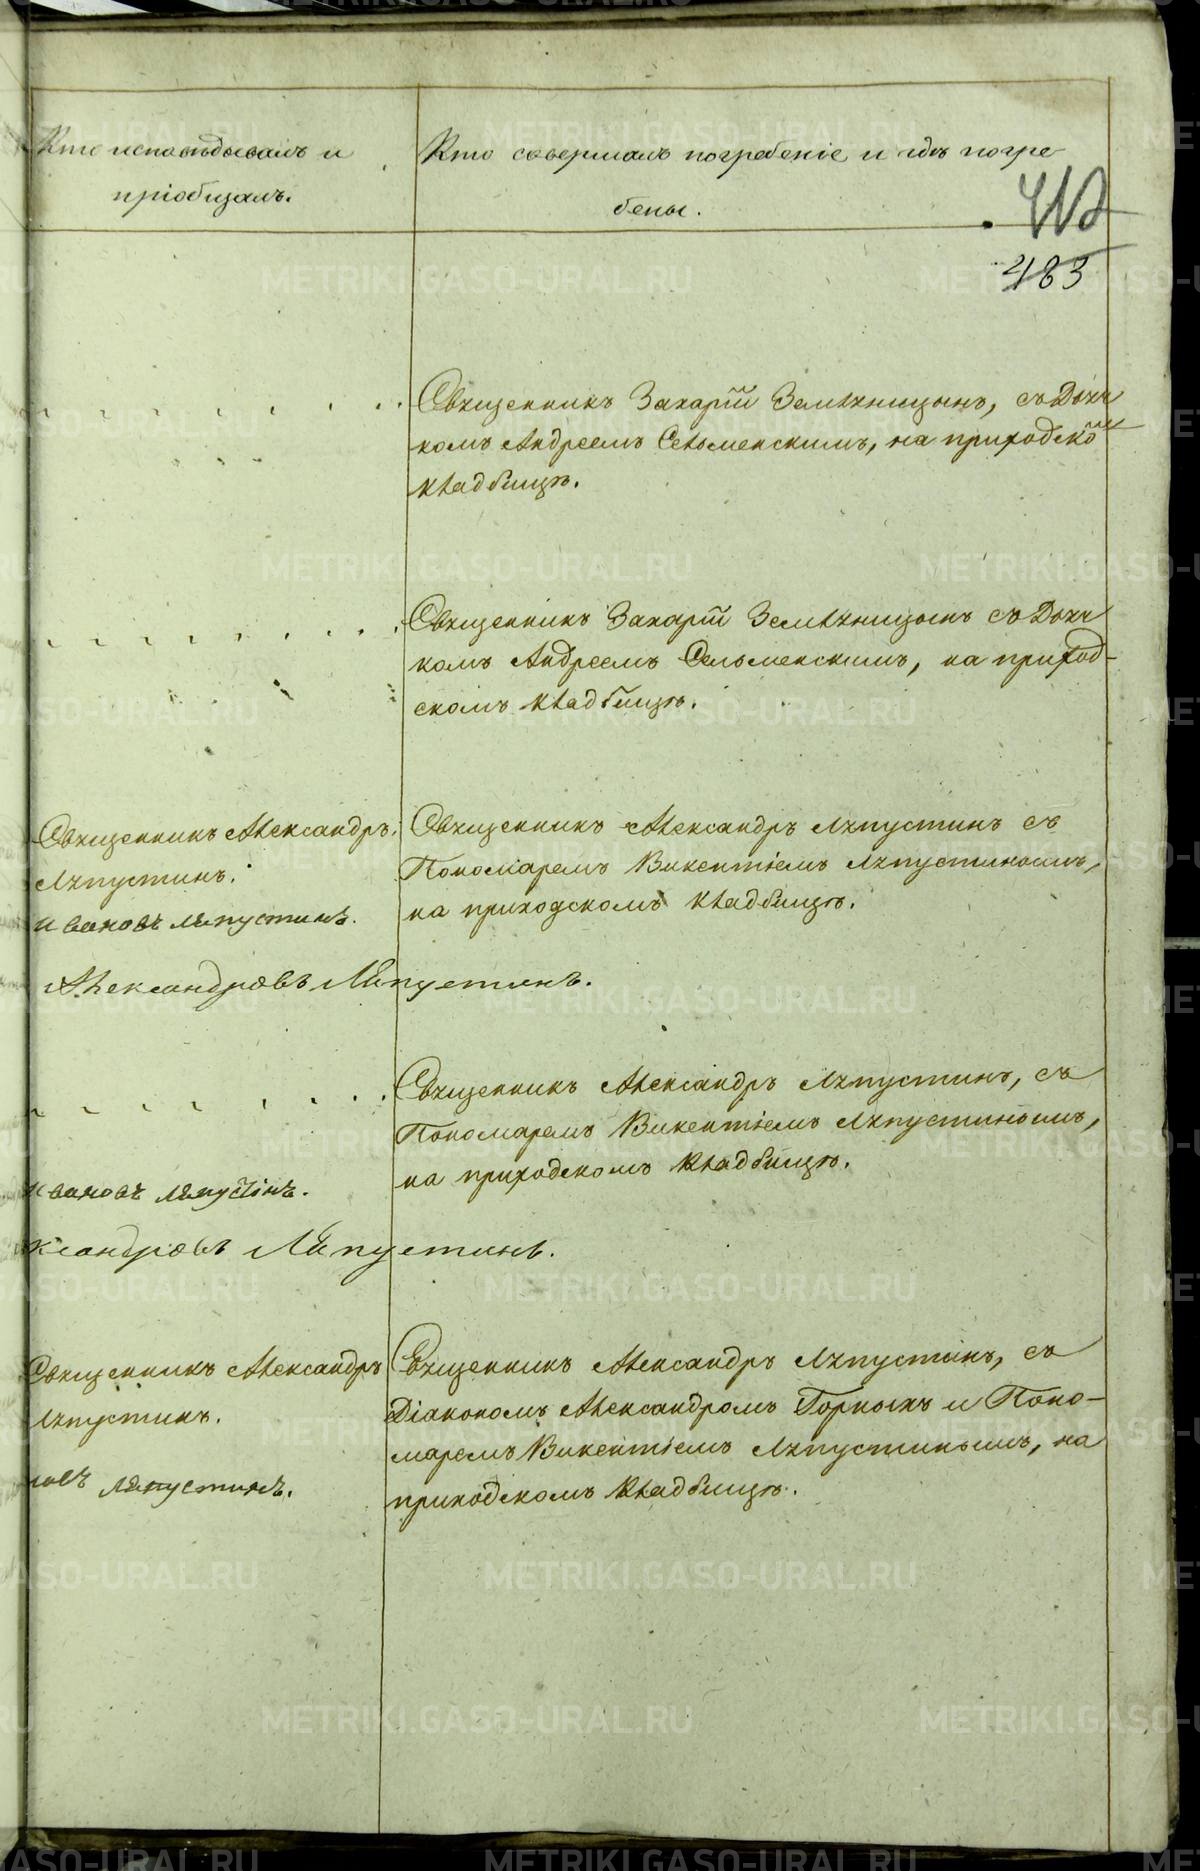 Кто исповѣдывалъ и
пріобщалъ.
Кто совершалъ погребеніе и гдѣ погре
бены.
412
483
Священникъ Захарій Земляницынъ, съ Дьяч
комъ Андреемъ Сельменскимъ, на приходскомъ
кладбищѣ.
Священникъ Захарій Земляницынъ съ Дьяч
комъ Андреемъ Сельменскимъ, на приход-
скомъ кладбищѣ.
Священникъ Александръ
Ляпустинъ.
Ивановъ Ляпустинъ.
Священникъ Александръ Ляпустинъ съ
Пономаремъ Викентіемъ Ляпустинымъ,
на приходскомъ кладбищѣ.
Александровъ Ляпустинъ.
Священникъ Александръ Ляпустинъ, съ
Пономаремъ Викентіемъ Ляпустинымъ,
на приходскомъ кладбищѣ.
Ивановъ Ляпустинъ.
ксандровъ Ляпустинъ.
Священникъ Александръ
Ляпустинъ.
новъ Ляпустинъ.
Священникъ Александръ Ляпустинъ, съ
Діакономъ Александромъ Горныхъ и Поно-
маремъ Викентіемъ Ляпустинымъ, на
приходскомъ кладбищѣ.
METRIKI.GASO-URAL.RU